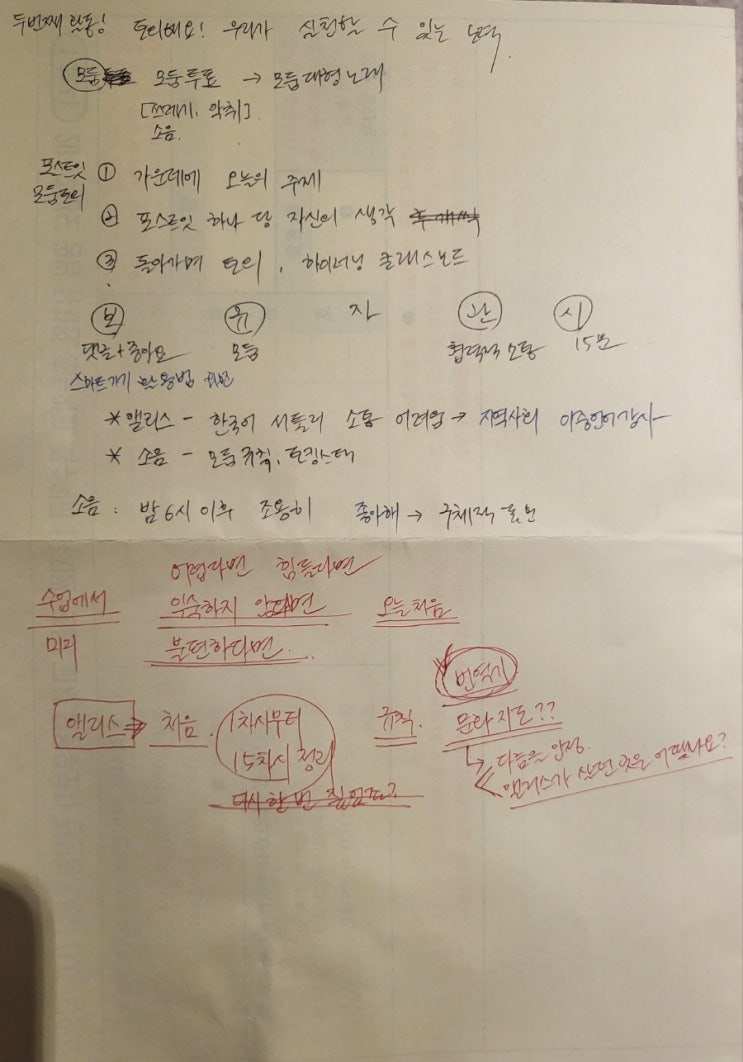 두번째 활동! 토의해요! 우리가 실천할 수 있는 노력
모둠 모둠투표 → 모둠대형 노래
[쓰레기, 악취]
소음
포스트잇 ① 가운데에 오늘의 주제
모둠토의
② 포스트잇 하나 당 자신의 생각
③ 돌아가며 토의, 하이러닝 클래스보드
보 유 자 관 시
댓글+좋아요 모둠 협력적 소통 15분
스마트기기 활용법
* 앨리스 - 한국어 서툴러 소통 어려움 → 지역사회 이중언어강사
* 소음 - 모둠규칙, 토킹스틱
소음 : 밤 6시 이후 조용히 좋아해 → 구체적
어렵다면 힘들다면
수업에서 익숙하지 않다면 오늘 처음
미리 불편하다면...
번역기
앨리스 → 처음. 1차시부터 규칙. 문화 지도??
15차시 정리 ↳ 다름을 인정.
다시 한 번 앨리스가 살던 곳은 어땠나요?